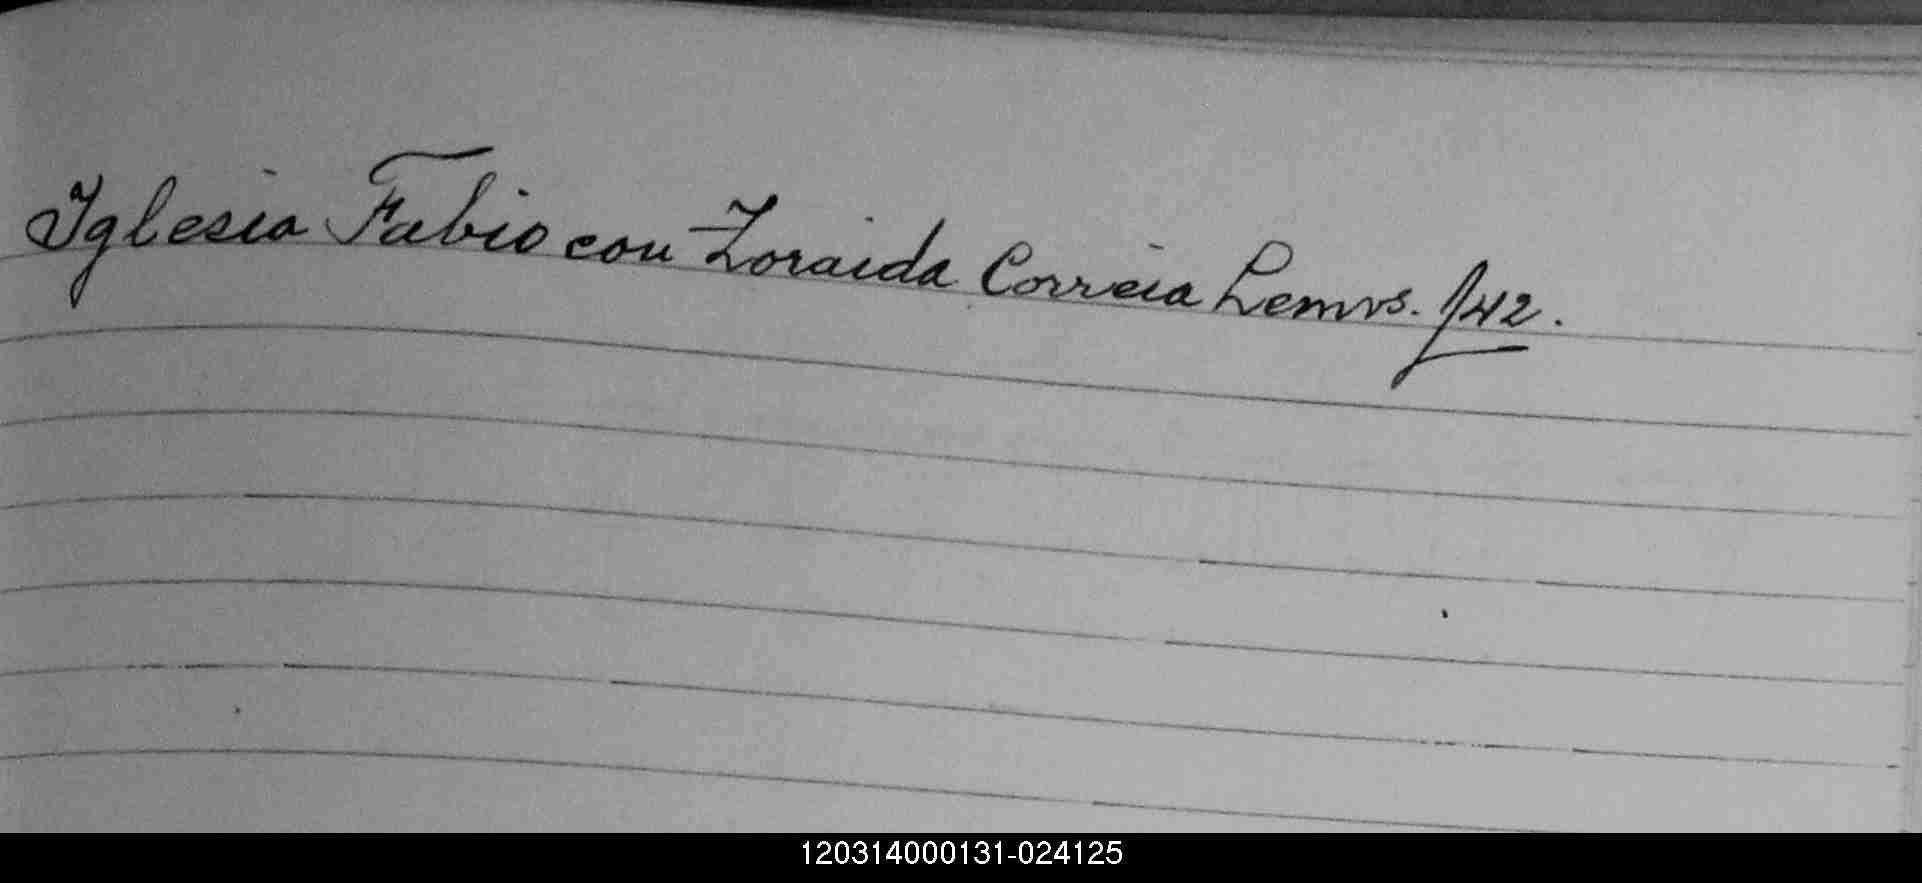 Iglesia Fabio con Zoraida Correia Lemos. f42.
120314000131-024125